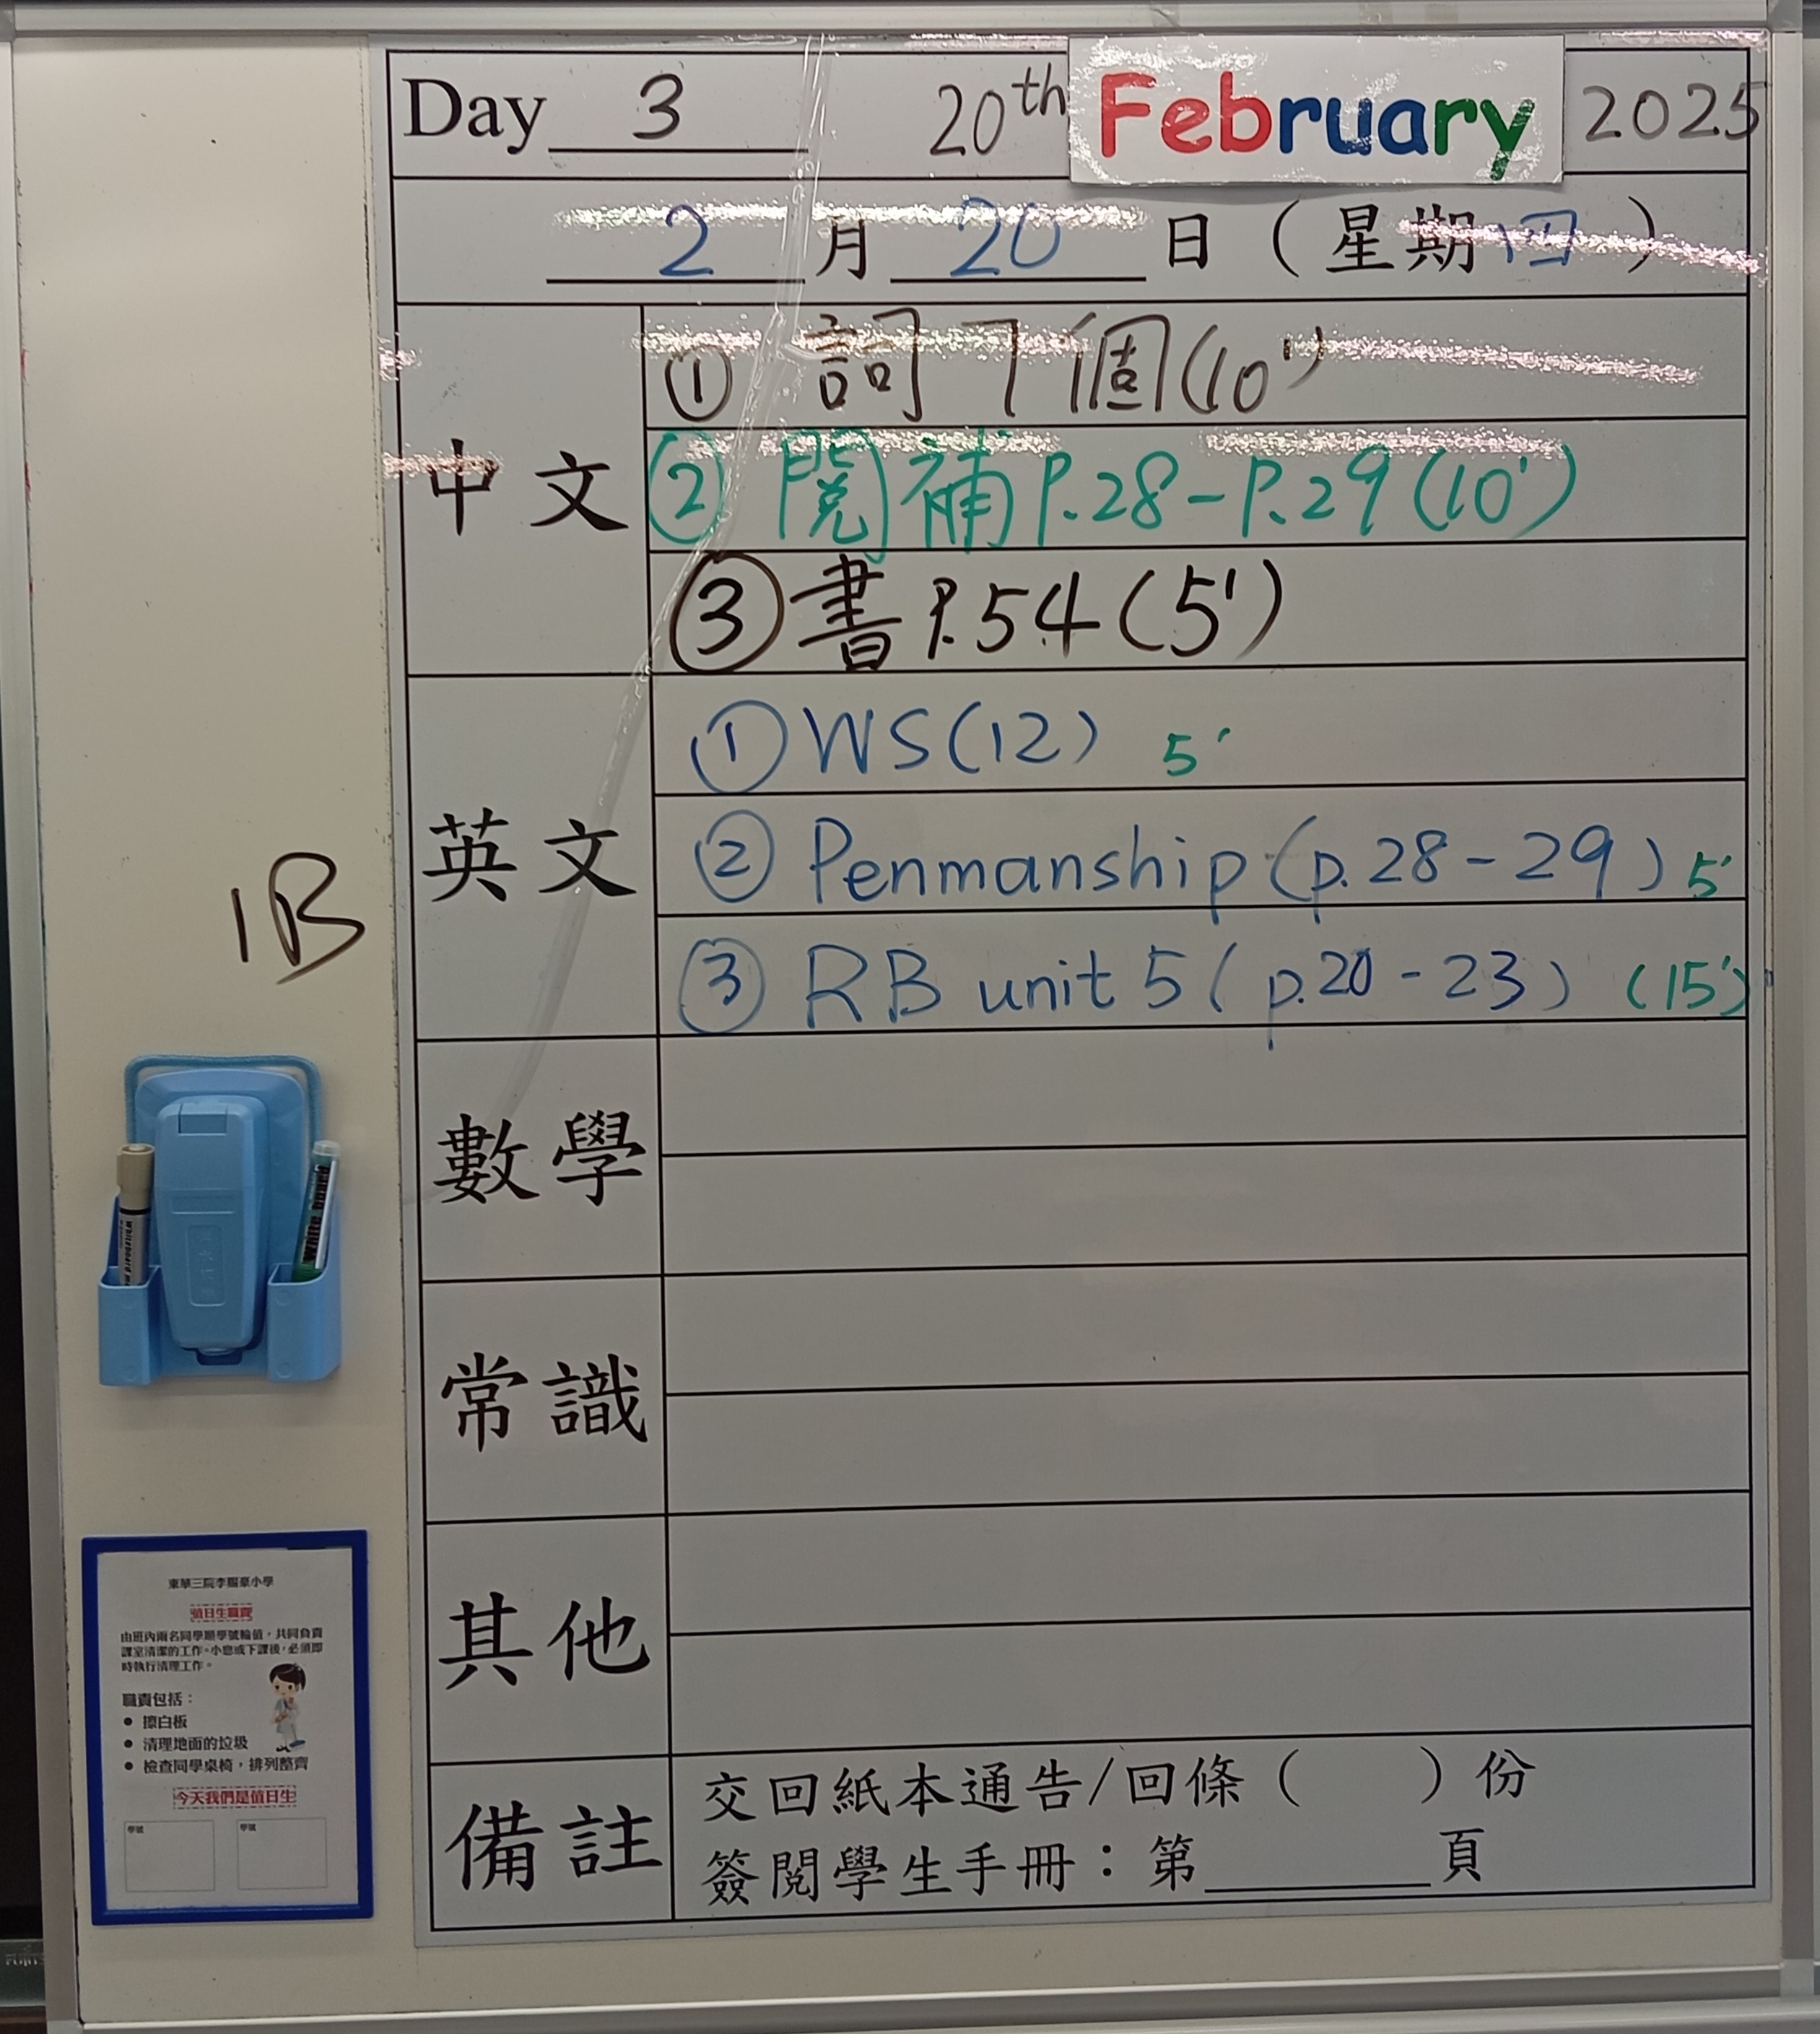 Day 3 20th February 2025
2 月 20 日 ( 星期四 )
中文
① 詞 7 個 (10')
② 閱補 P.28-P.29 (10')
③ 書 P.54 (5')
英文
① WS (12) 5'
② Penmanship (p.28-29) 5'
③ RB unit 5 (p.20-23) (15')
1B
數學
常識
其他
備註
交回紙本通告/回條 ( ) 份
簽閱學生手冊：第______頁
Whiteboard
White board
東華三院李賜豪小學
值日生職責
由班內兩名同學順學號輪值，共同負責
課室清潔的工作。小息或下課後，必須即
時執行清理工作。
職責包括：
● 擦白板
● 清理地面的垃圾
● 檢查同學桌椅，排列整齊
今天我們是值日生
學號 學號